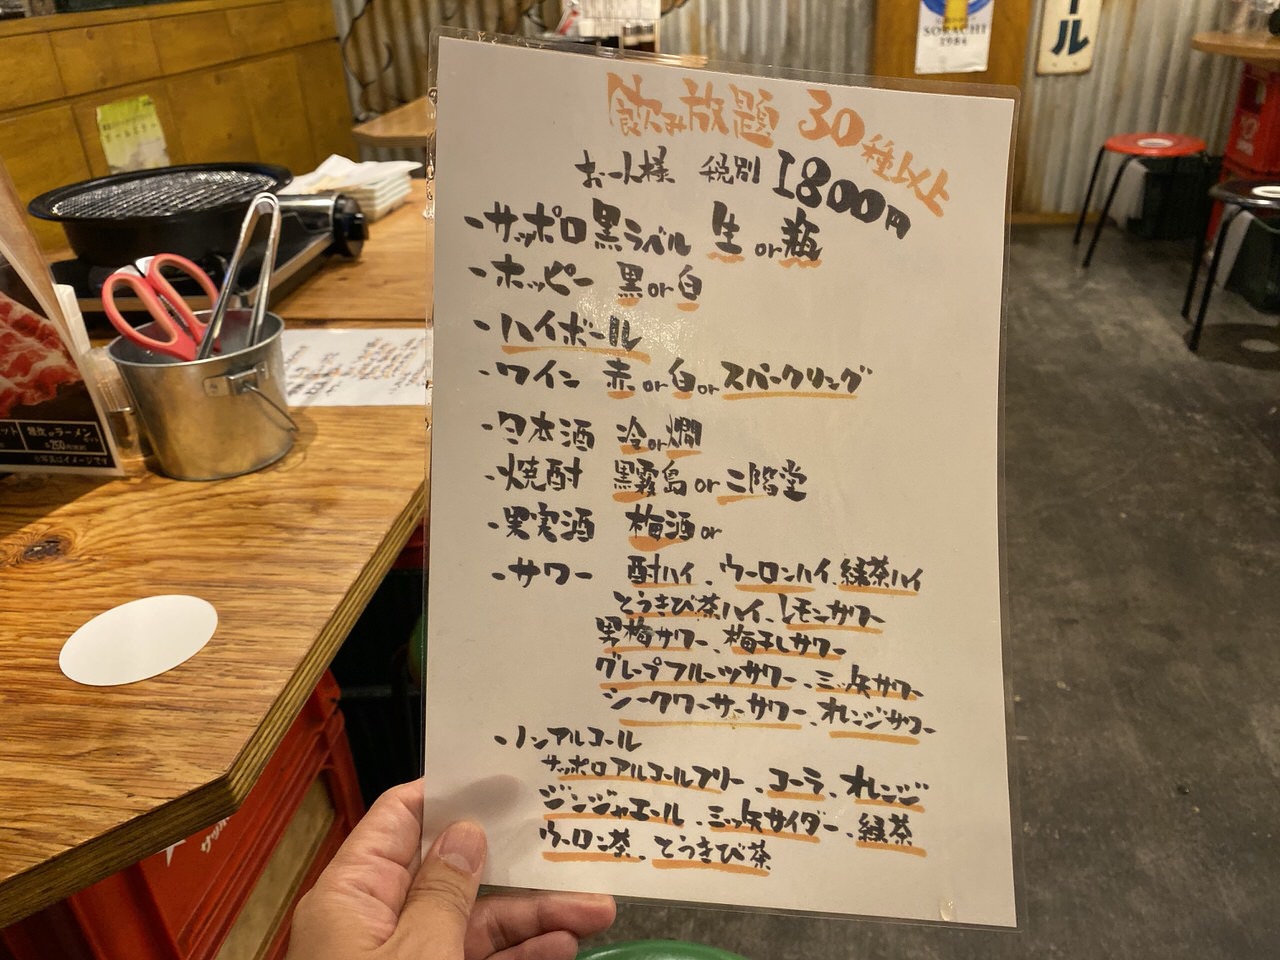 飲み放題 30種以上
お一人様 税別 1800円
・サッポロ黒ラベル 生or瓶
・ホッピー 黒or白
・ハイボール
・ワイン 赤or白orスパークリング
・日本酒 冷or燗
・焼酎 黒霧島or二階堂
・果実酒 梅酒or
・サワー 酎ハイ、ウーロンハイ、緑茶ハイ
とうきび茶ハイ、レモンサワー
男梅サワー、梅干しサワー
グレープフルーツサワー、三ッ矢サワー
シークワーサーサワー、オレンジサワー
・ノンアルコール
サッポロアルコールフリー、コーラ、オレンジ
ジンジャエール、三ッ矢サイダー、緑茶
ウーロン茶、とうきび茶
SORACHI
1984
ール